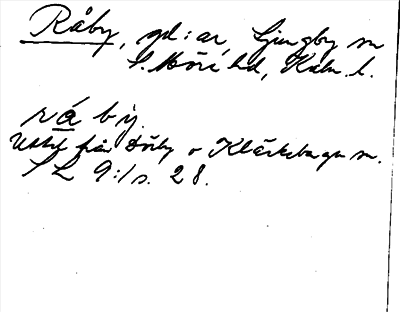 Råby, gd:ar, Ljungby sn
S. Möre hd, Kalm. l.
råby.
Utbr från Dörby o Kläckeberga sn.
SL 9:1 s. 28.